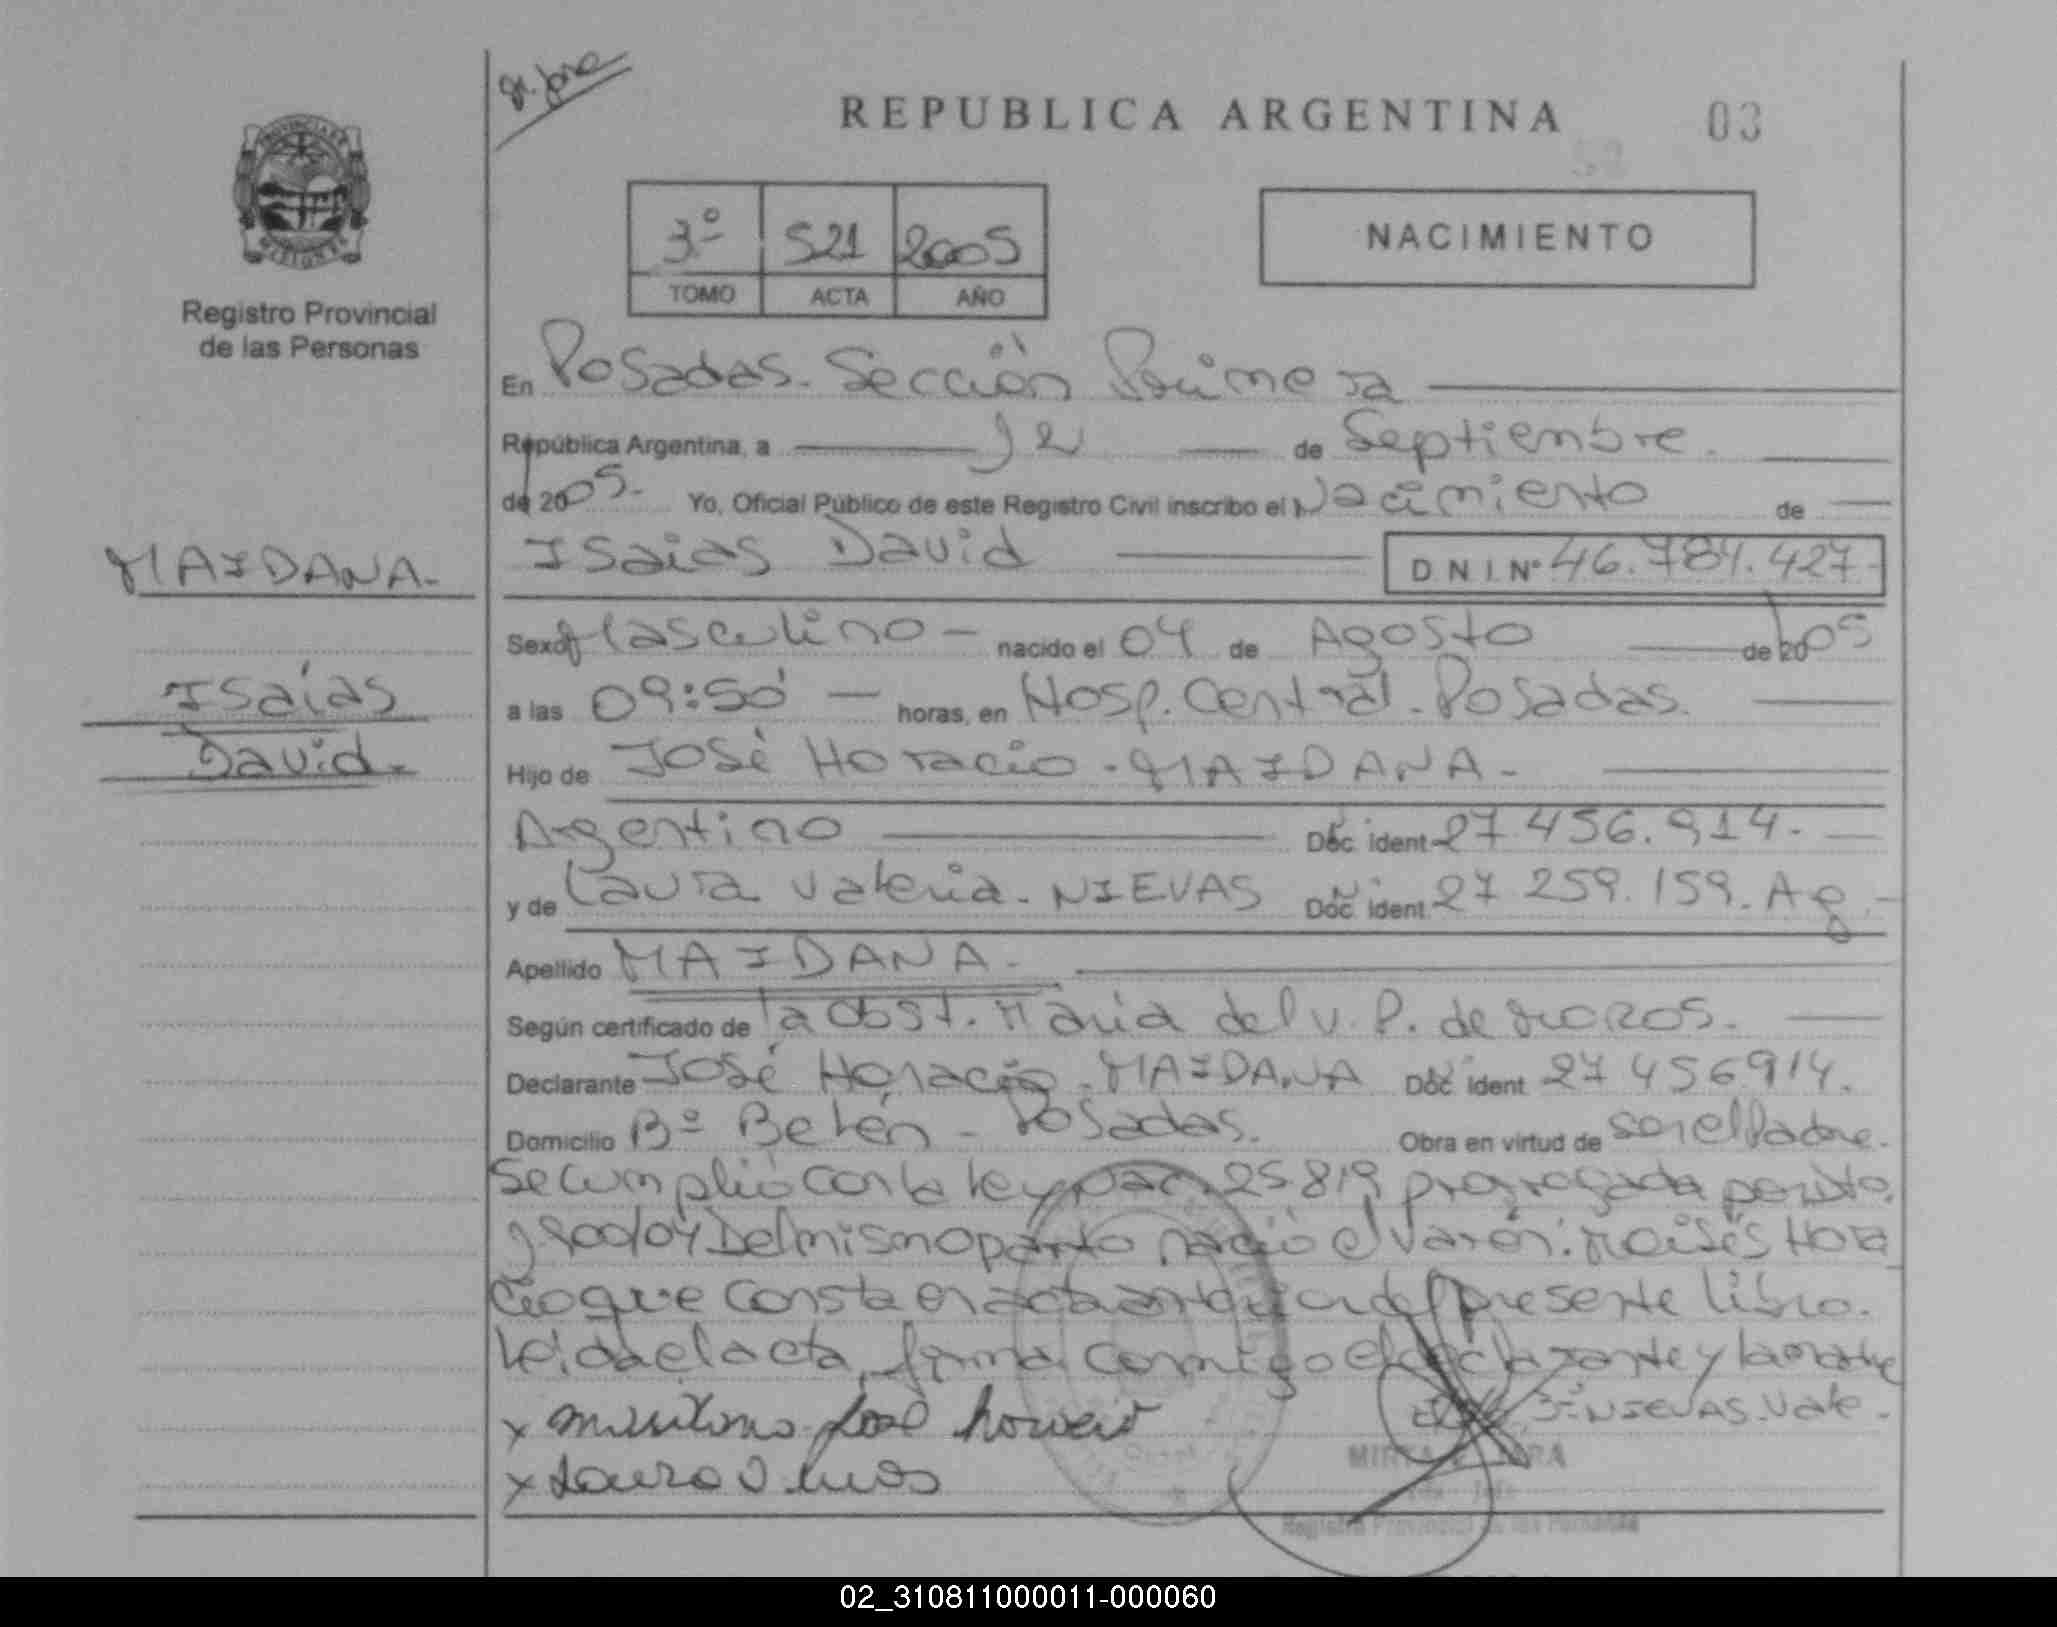 St. Jorge
REPUBLICA ARGENTINA 03
3º 521 2005
TOMO ACTA AÑO
NACIMIENTO
Registro Provincial
de las Personas
En Posadas. Sección Primera
República Argentina, a 12 de Septiembre.
de 2005. Yo, Oficial Público de este Registro Civil inscribo el Nacimiento de
Isaias David D N I. Nº 46.784.427-
MAIDANA-
Isaías
David.
Sexo Masculino - nacido el 04 de Agosto de 2005
a las 09:50 horas, en Hosp. Central. Posadas.
Hijo de José Horacio. MAIDANA-
Argentino Doc. ident 27 456.914.
y de Laura Valeria. NIEVAS Doc. ident. 27 259.159. Ag.
Apellido MAIDANA-
Según certificado de la obst. María del V. P. de
Declarante José Horacio. MAIDANA Doc. ident 27 456914.
Domicilio Bº Belén - Posadas. Obra en virtud de ser el Padre.
Se cumplió con la ley Nac. 25819 prorrogada por Dto.
1900/04 Del mismo parto nació el varón: Moisés Hora
cio que consta en acta anterior del presente libro.
Leída el acta, firma conmigo el declarante y la madre
x José 3- NIEVAS. Vale.
x Laura
Registro Provincial de las Personas
02_310811000011-000060